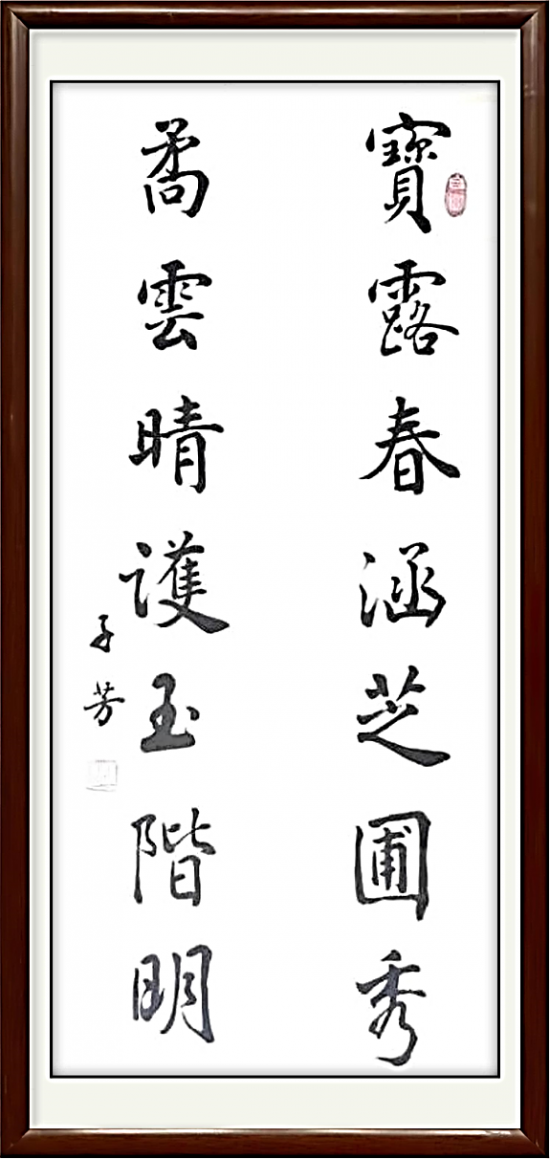 寶露春涵芝圃秀
矞雲晴護玉階明
子芳